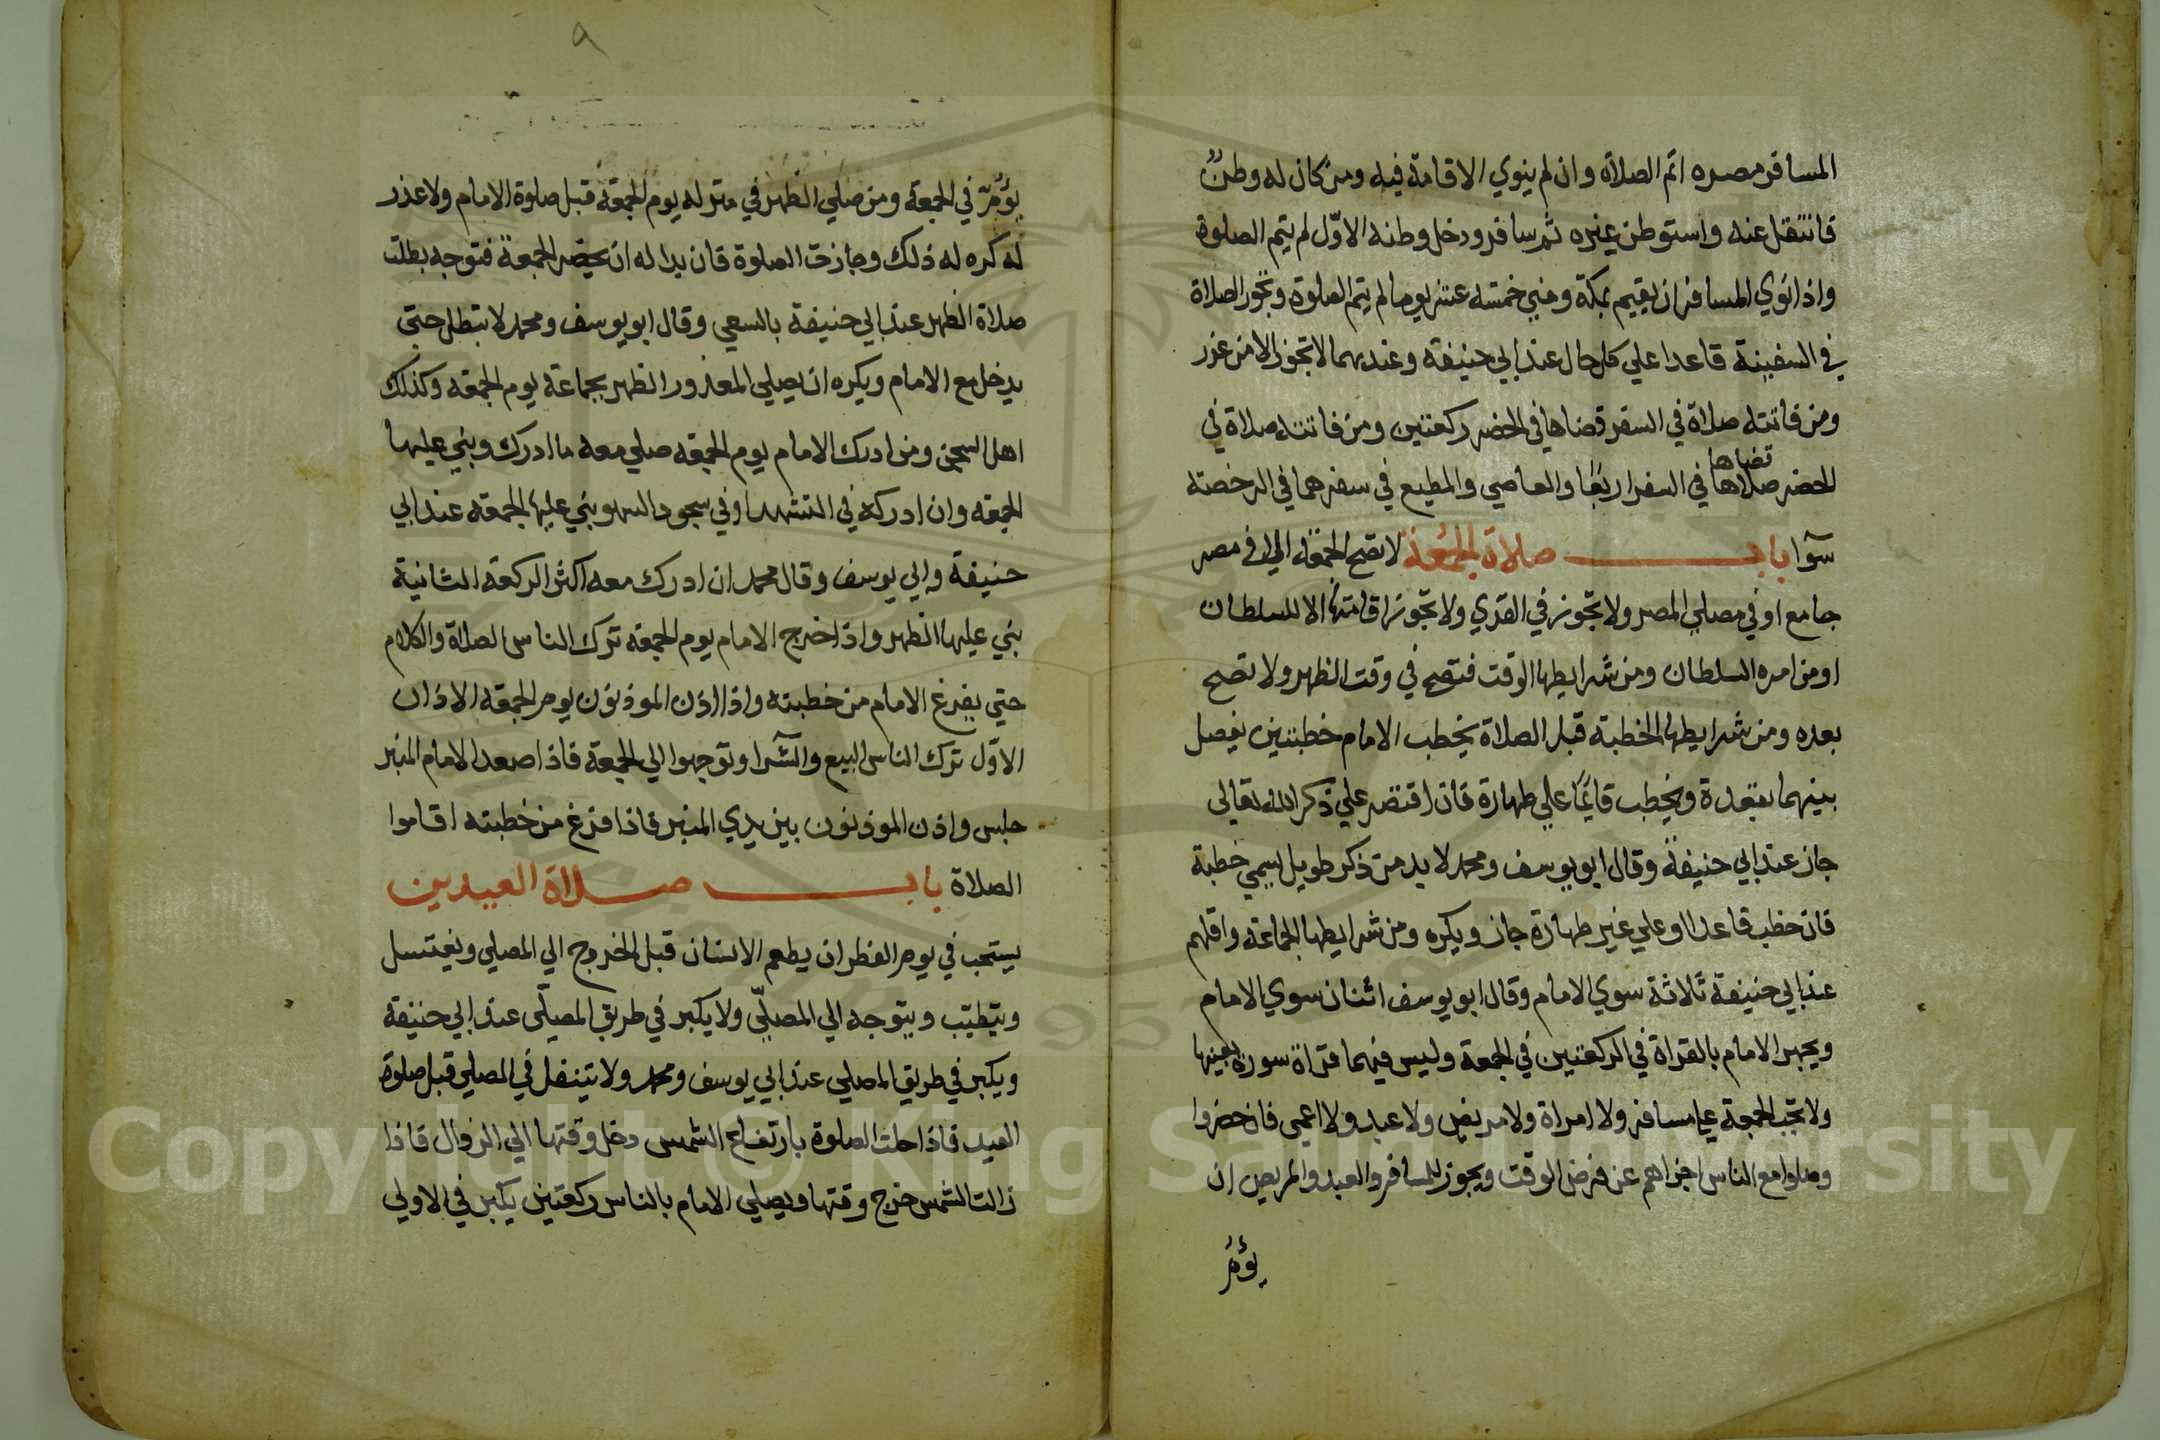 المسافر مصره اتم الصلاة وان لم ينوي الاقامة فيه ومن كان له وطنٌ
فانتقل عنه واستوطن غيره ثم سافر ودخل وطنه الاوّل لم يتم الصلوة
واذا نوي المسافر ان يقيم بمكة ومني خمسة عشر يوما لم يتم الصلوة وتجوز الصلاة
في السفينة قاعدا علي كل حال عند ابي حنيفة وعندهما لا تجوز الا من عذر
ومن فاتته صلاة في السفر قضاها في الحضر ركعتين ومن فاتته صلاة في
قضاها
الحضر صلاها في السفر اربعًا والعاصي والمطيع في سفرهما في الرخصة
سوآ باب صلاة الجمعة لا تصح الجمعة الا في مصر
جامع او في مصلي المصر ولا تجوز في القري ولا تجوز اقامتها الا للسلطان
او من امره السلطان ومن شرايطها الوقت فتصح في وقت الظهر ولا تصح
بعده ومن شرايطها الخطبة قبل الصلاة يخطب الامام خطبتين يفصل
بينهما بقعدة ويخطب قايمًا علي طهارة فان اقتصر علي ذكر الله تعالي
جاز عند ابي حنيفة وقال ابو يوسف ومحمد لا بد من ذكر طويل يسمي خطبة
فان خطب قاعدا او علي غير طهارة جاز ويكره ومن شرايطها الجماعة واقلهم
عند ابي حنيفة ثلاثة سوي الامام وقال ابو يوسف اثنان سوي الامام
ويجهر الامام بالقراة في الركعتين في الجمعة وليس فيهما قراة سورة بعينها
ولا تجب الجمعة علي مسافر ولا امراة ولا مريض ولا عبد ولا اعمي فان حضروا
وصلوا مع الناس اجزاهم عن فرض الوقت ويجوز للمسافر والعبد والمريض ان
يؤمَّ
٩
يؤمّ في الجمعة ومن صلي الظهر في منزله يوم الجمعة قبل صلوة الامام ولا عذر
له كره له ذلك وجازت الصلوة فان بدا له ان يحضر الجمعة فتوجه بطلت
صلاة الظهر عند ابي حنيفة بالسعي وقال ابو يوسف ومحمد لا تبطل حتي
يدخل مع الامام ويكره ان يصلي المعذور الظهر بجماعة يوم الجمعة وكذلك
اهل السجن ومن ادرك الامام يوم الجمعة صلي معه ما ادرك وبني عليها
الجمعة وان ادركه في التشهد او في سجود السهو بني عليها الجمعة عند ابي
حنيفة وابي يوسف وقال محمد ان ادرك معه اكثر الركعة الثانية
بني عليها الظهر واذا خرج الامام يوم الجمعة ترك الناس الصلاة والكلام
حتي يفرغ الامام من خطبته واذا اذن الموذنون يوم الجمعة الاذان
الاوّل ترك الناس البيع والشرا وتوجهوا الي الجمعة فاذا صعد الامام المنبر
جلس واذن الموذنون بين يدي المنبر فاذا فرغ من خطبته اقاموا
الصلاة باب صلاة العيدين
يستحب في يوم الفطر ان يطعم الانسان قبل الخروج الي المصلي ويغتسل
ويتطيّب ويتوجه الي المصلّي ولا يكبر في طريق المصلّى عند ابي حنيفة
ويكبر في طريق المصلي عند ابي يوسف ومحمد ولا يتنفل في المصلي قبل صلوة
العيد فاذا حلت الصلوة بارتفاع الشمس دخل وقتها الي الزوال فاذا
زالت الشمس خرج وقتها ويصلي الامام بالناس ركعتين يكبر في الاولي
Copyright © King Saud University